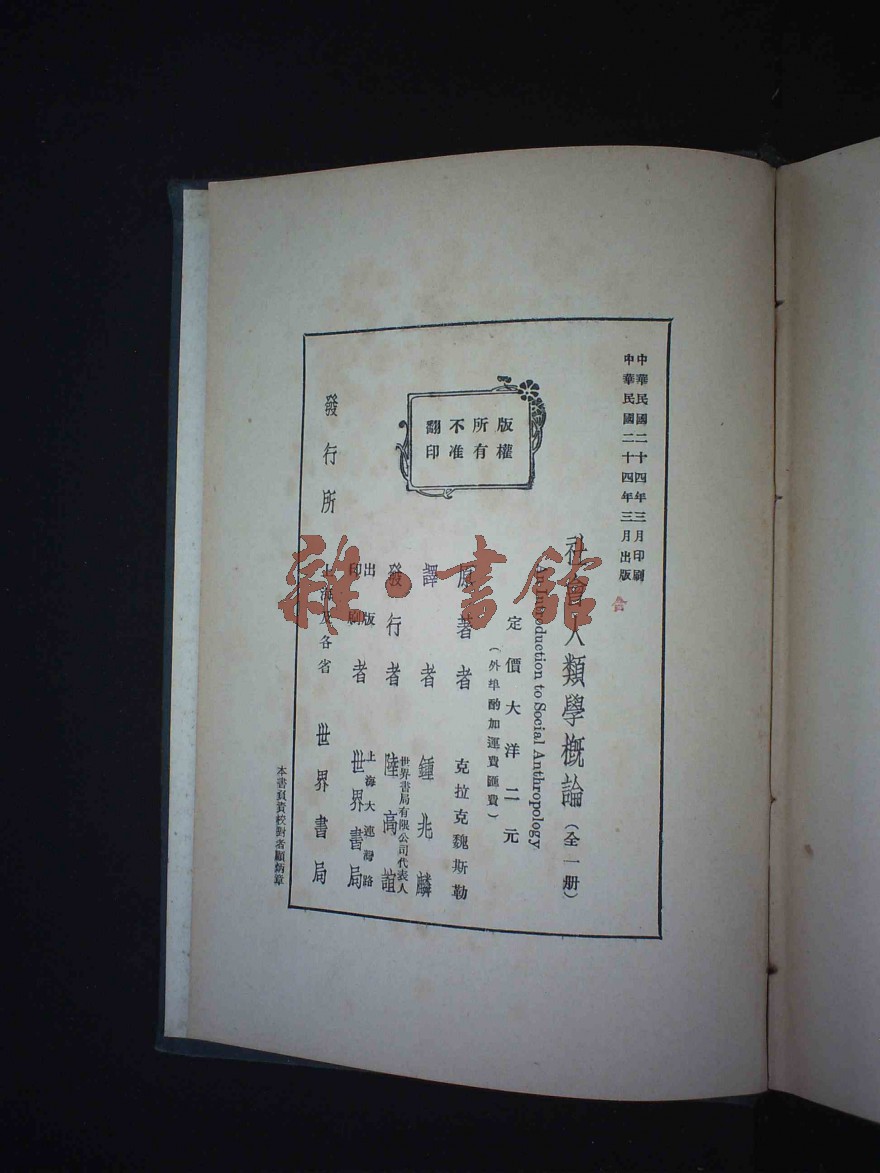 中華民國二十四年三月印刷
中華民國二十四年三月出版
社會人類學概論（全一册）
An Introduction to Social Anthropology
定價大洋二元
（外埠酌加運費匯費）
版權所有
不准翻印
原著者 克拉克魏斯勒
譯者 鍾兆麟
發行者 世界書局有限公司代表人 陸高誼
出版印刷者 上海大連灣路 世界書局
發行所 上海及各省 世界書局
本書負責校對者顧炳章
雜·書館